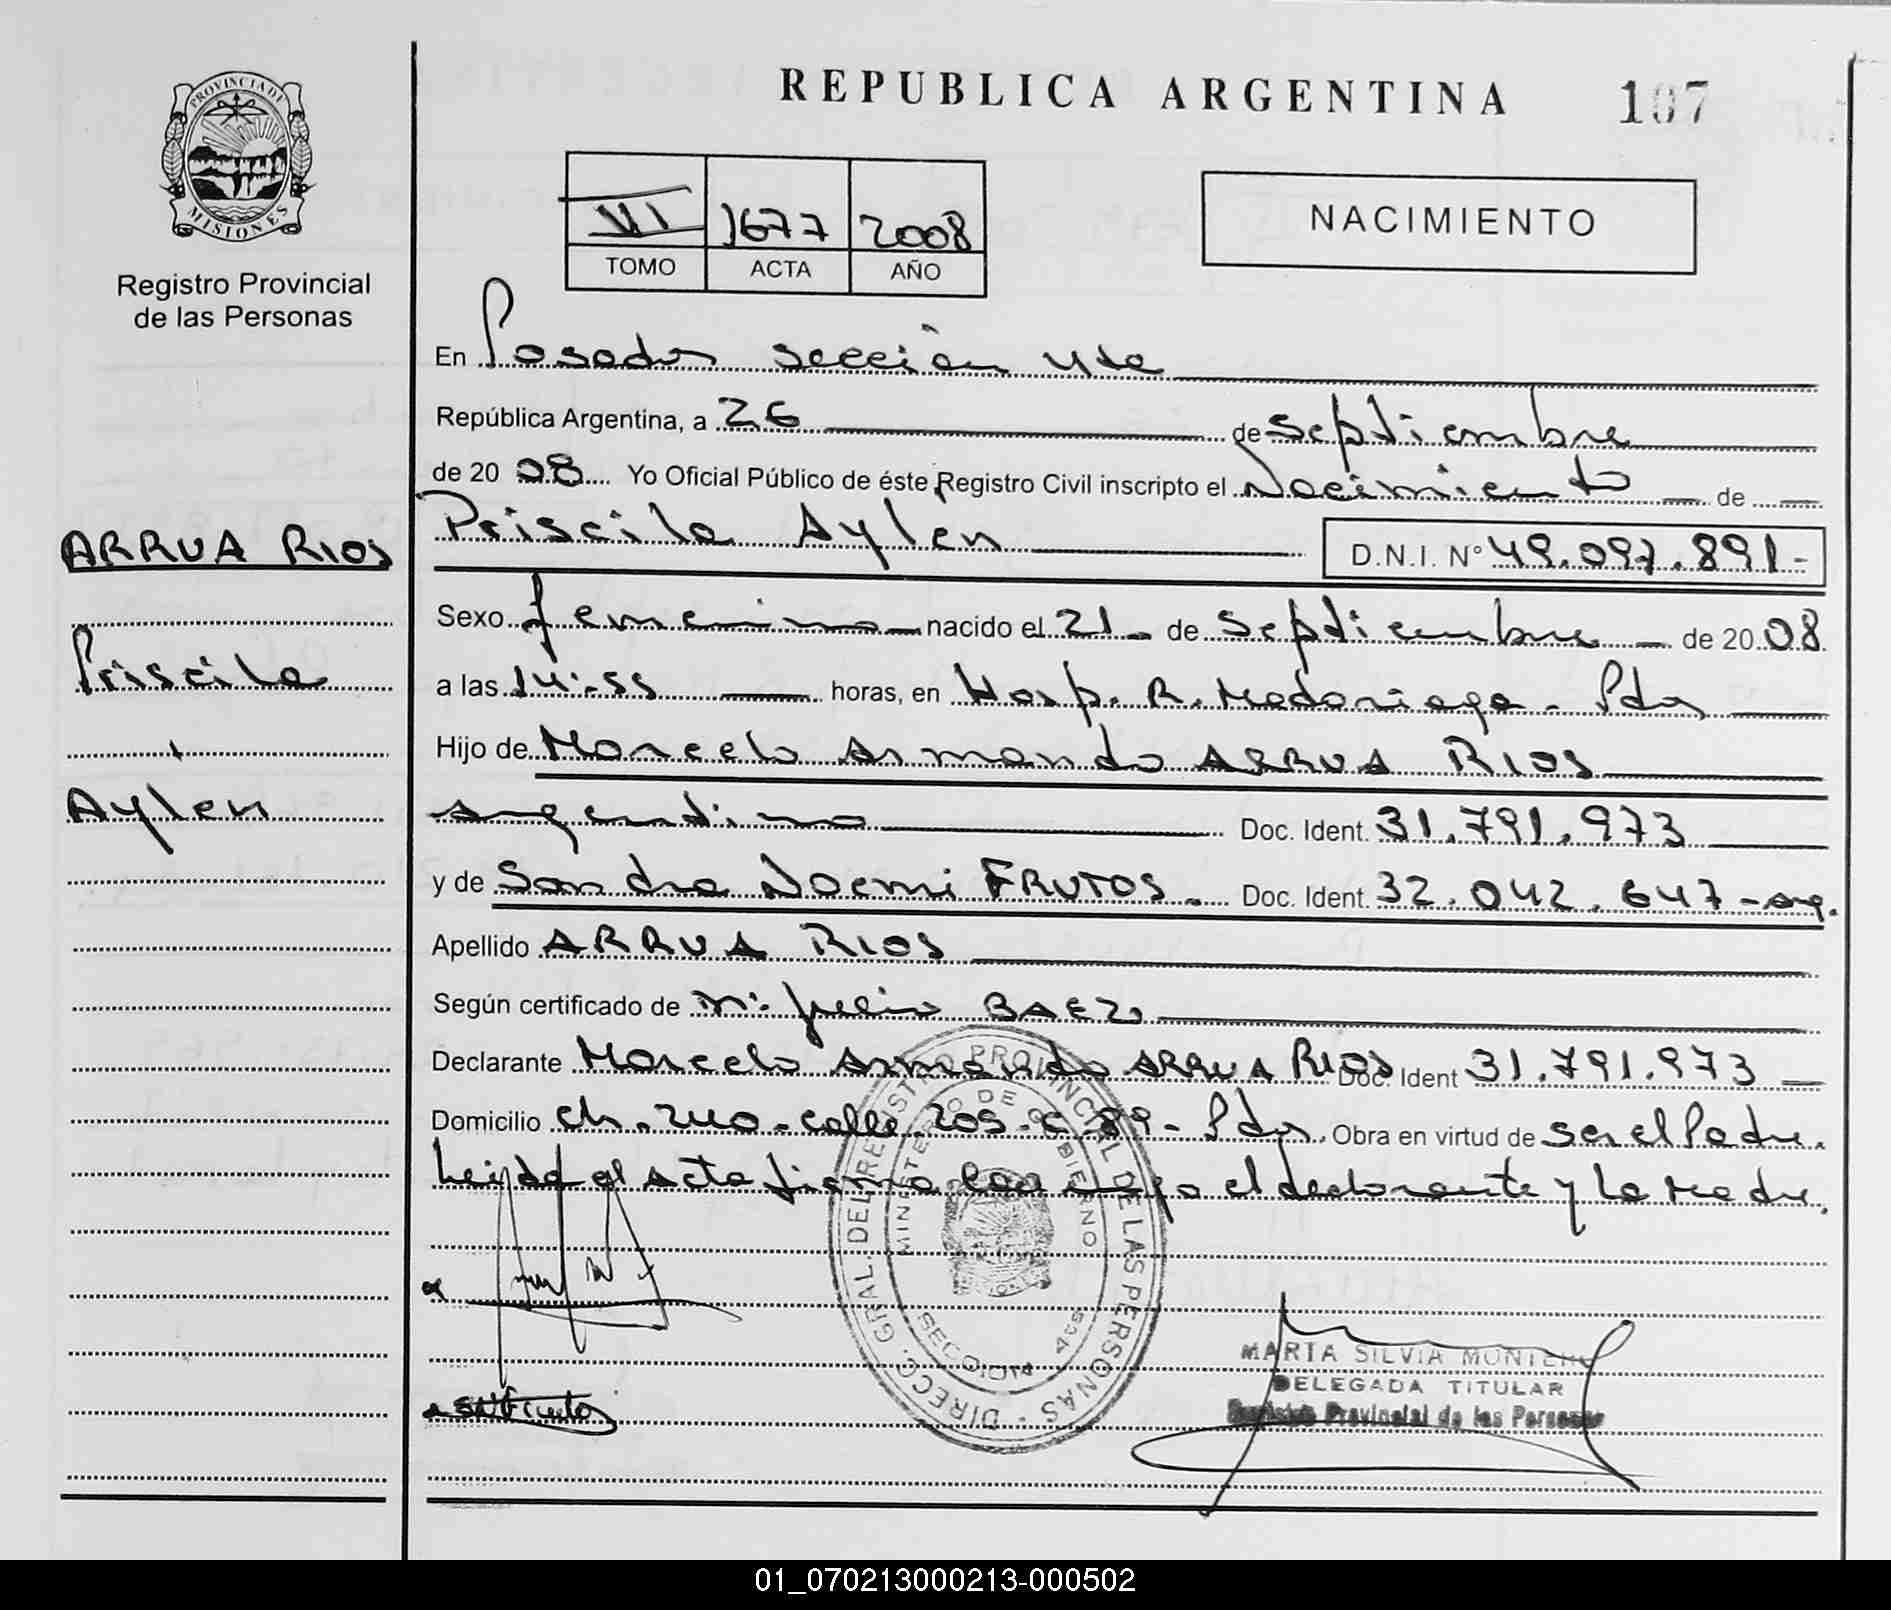 REPUBLICA ARGENTINA
107
PROVINCIA DE
MISIONES
Registro Provincial
de las Personas
VI 1677 2008
TOMO ACTA AÑO
NACIMIENTO
En Posadas sección 4ta
República Argentina, a 26 de Septiembre
de 20 08 Yo Oficial Público de éste Registro Civil inscripto el Nacimiento de
Priscila Aylén D.N.I. N° 49.097.891-
ARRUA RIOS
Priscila
Aylén
Sexo femenino nacido el 21 - de Septiembre - de 20 08
a las 14:55 horas, en Hosp. R. Madariaga - Pdas
Hijo de Marcelo Armando ARRUA RIOS
argentino Doc. Ident. 31.791.973
y de Sandra Noemi FRUTOS. Doc. Ident. 32.042.647 - arg.
Apellido ARRUA RIOS
Según certificado de Julio BAEZ
Declarante Marcelo Armando ARRUA RIOS Doc. Ident 31.791.973
Domicilio Ch. 240 - calle 205 - C. 89 - Pdas. Obra en virtud de ser el Padre.
Leida el acta firma el declarante y la Madre.
DIRECC. GRAL. DEL REGISTRO PROVINCIAL DE LAS PERSONAS
MINISTERIO DE GOBIERNO
SECCION 4ta
MARIA SILVIA
DELEGADA TITULAR
Provincial de las Personas
01_070213000213-000502